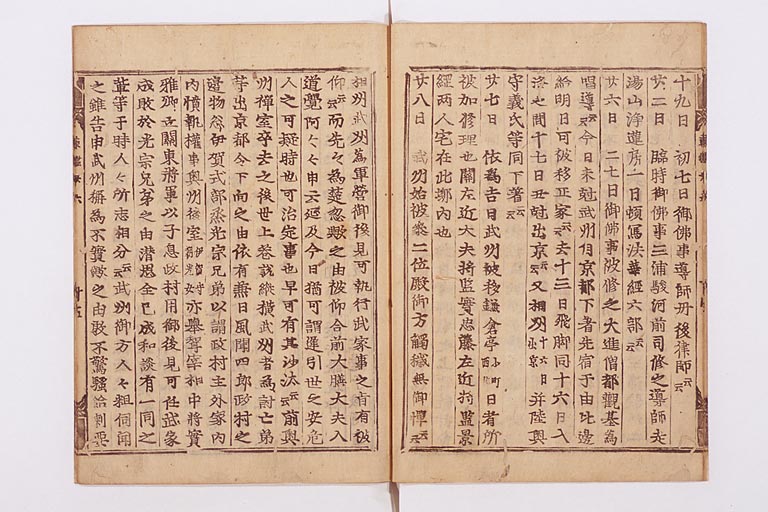 十九日 初七日御佛事導師丹後律師云云
廿二日 臨時御佛事三浦駿河前司修之導師走
湯山淨遍房一日頓寫法華經六部云云
廿六日 二七日御佛事被修之大進僧都觀基為
唱導云云今日未尅武州自京都下著先宿于由比邊
給明日可被移正家云云去十三日飛脚同十六日入
洛之間十七日丑尅出京云云又相州十六日出京并陸奥
守義氏等同下著云云
廿七日 依為吉日武州被移鎌倉亭小町西北日者所
被加修理也關左近大夫將監實忠藤左近將監景
經兩人宅在此郭內也
廿八日 武州始被參二位殿御方觸穢無御憚云云
相州武州為軍營御後見可執行武家事之旨有被
仰云云而先々為楚忽歟之由被仰合前大膳大夫入
道覺阿々々申云延及今日猶可謂遅引世之安危
人之可疑時也可治定事也早可有其沙汰云云前奥
州禪室卒去之後世上巷說縱橫武州者為討亡弟
等出京都令下向之由依有兼日風聞四郎政村之
邊物忩伊賀式部丞光宗兄弟以謂政村主外家內
內憤執權事奥州後室伊賀守朝光女亦舉聟宰相中將實
雅卿立關東將軍以子息政村用御後見可任武家
成敗於光宗兄弟之由潛思企已成和談有一同之
輩等于時人々所志相分云云武州御方人々粗伺聞
之雖告申武州稱為不實歟之由敢不驚騷給剩要